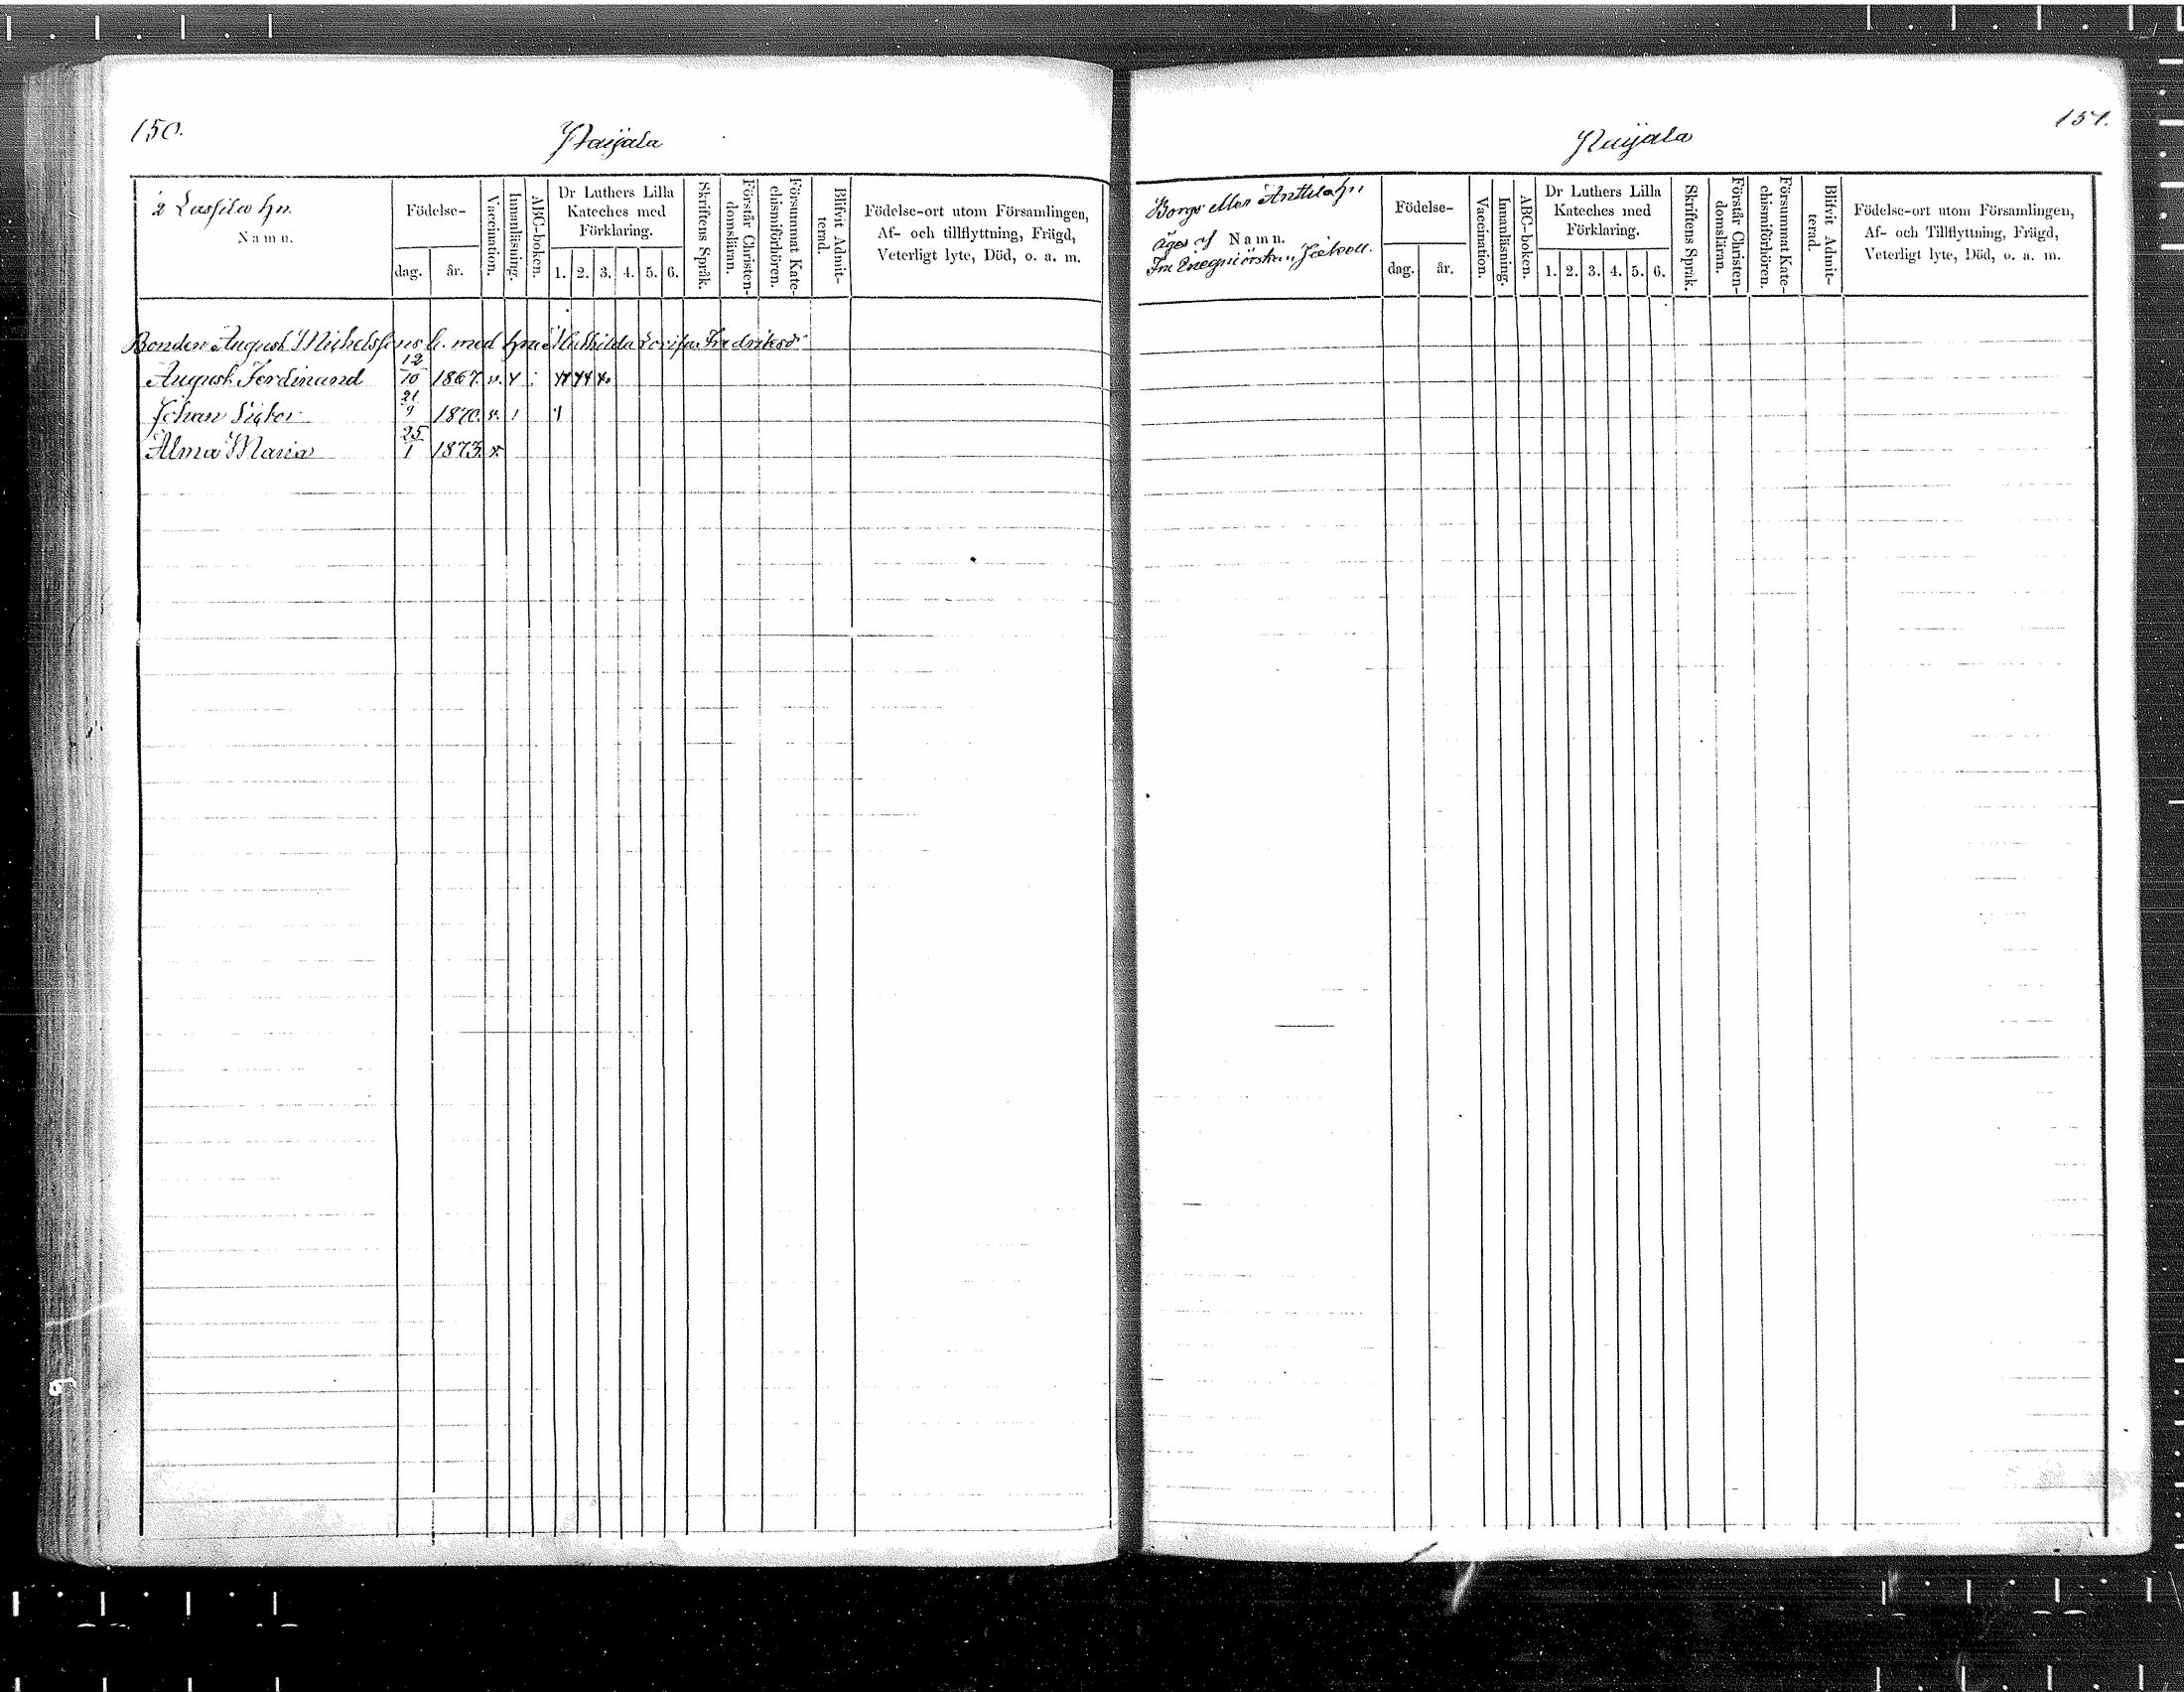 150.
Raijala
2 Lassila hn.
Namn.
Födelse-
dag.
år.
Vaccination.
Innanläsning.
ABC-boken.
Dr Luthers Lilla
Kateches med
Förklaring.
1. 2. 3. 4. 5. 6.
Skriftens Språk.
Förstår Christen-
domsläran.
Försummat Kate-
chismiförhören.
Blifvit Admit-
terad.
Födelse-ort utom Församlingen,
Af- och tillflyttning, Frägd,
Veterligt lyte, Död, o. a. m.
Bonden August Michelssons b. med hu Mathilda Lovisa Fredriksdr
August Ferdinand 12/10 1867. v.
Johan Victor 21/9 1870. v.
Alma Maria 25/1 1873. v.
151.
Raijala
Borgs eller Anttila hn
äges af
Namn.
Fru
Födelse-
dag.
år.
Vaccination.
Innanläsning.
ABC-boken.
Dr Luthers Lilla
Kateches med
Förklaring.
1. 2. 3. 4. 5. 6.
Skriftens Språk.
Förstår Christen-
domsläran.
Försummat Kate-
chismiförhören.
Blifvit Admit-
terad.
Födelse-ort utom Församlingen,
Af- och Tillflyttning, Frägd,
Veterligt lyte, Död, o. a. m.